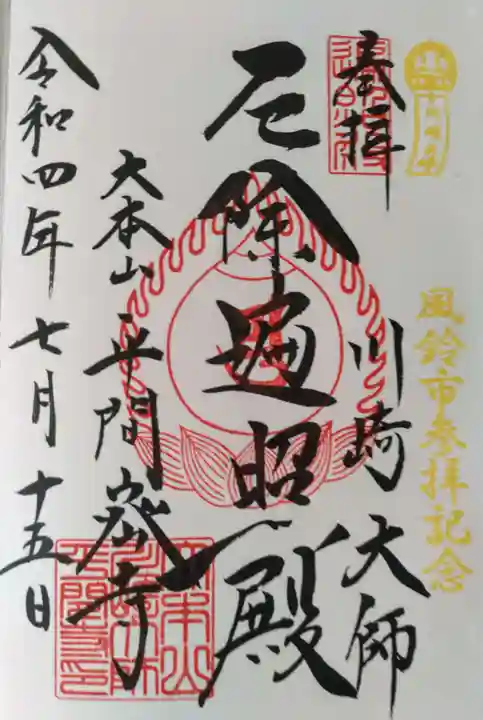 風鈴市参拝記念
奉拝
川崎大師
厄除遍照殿
大本山
平間寺
令和四年七月十五日